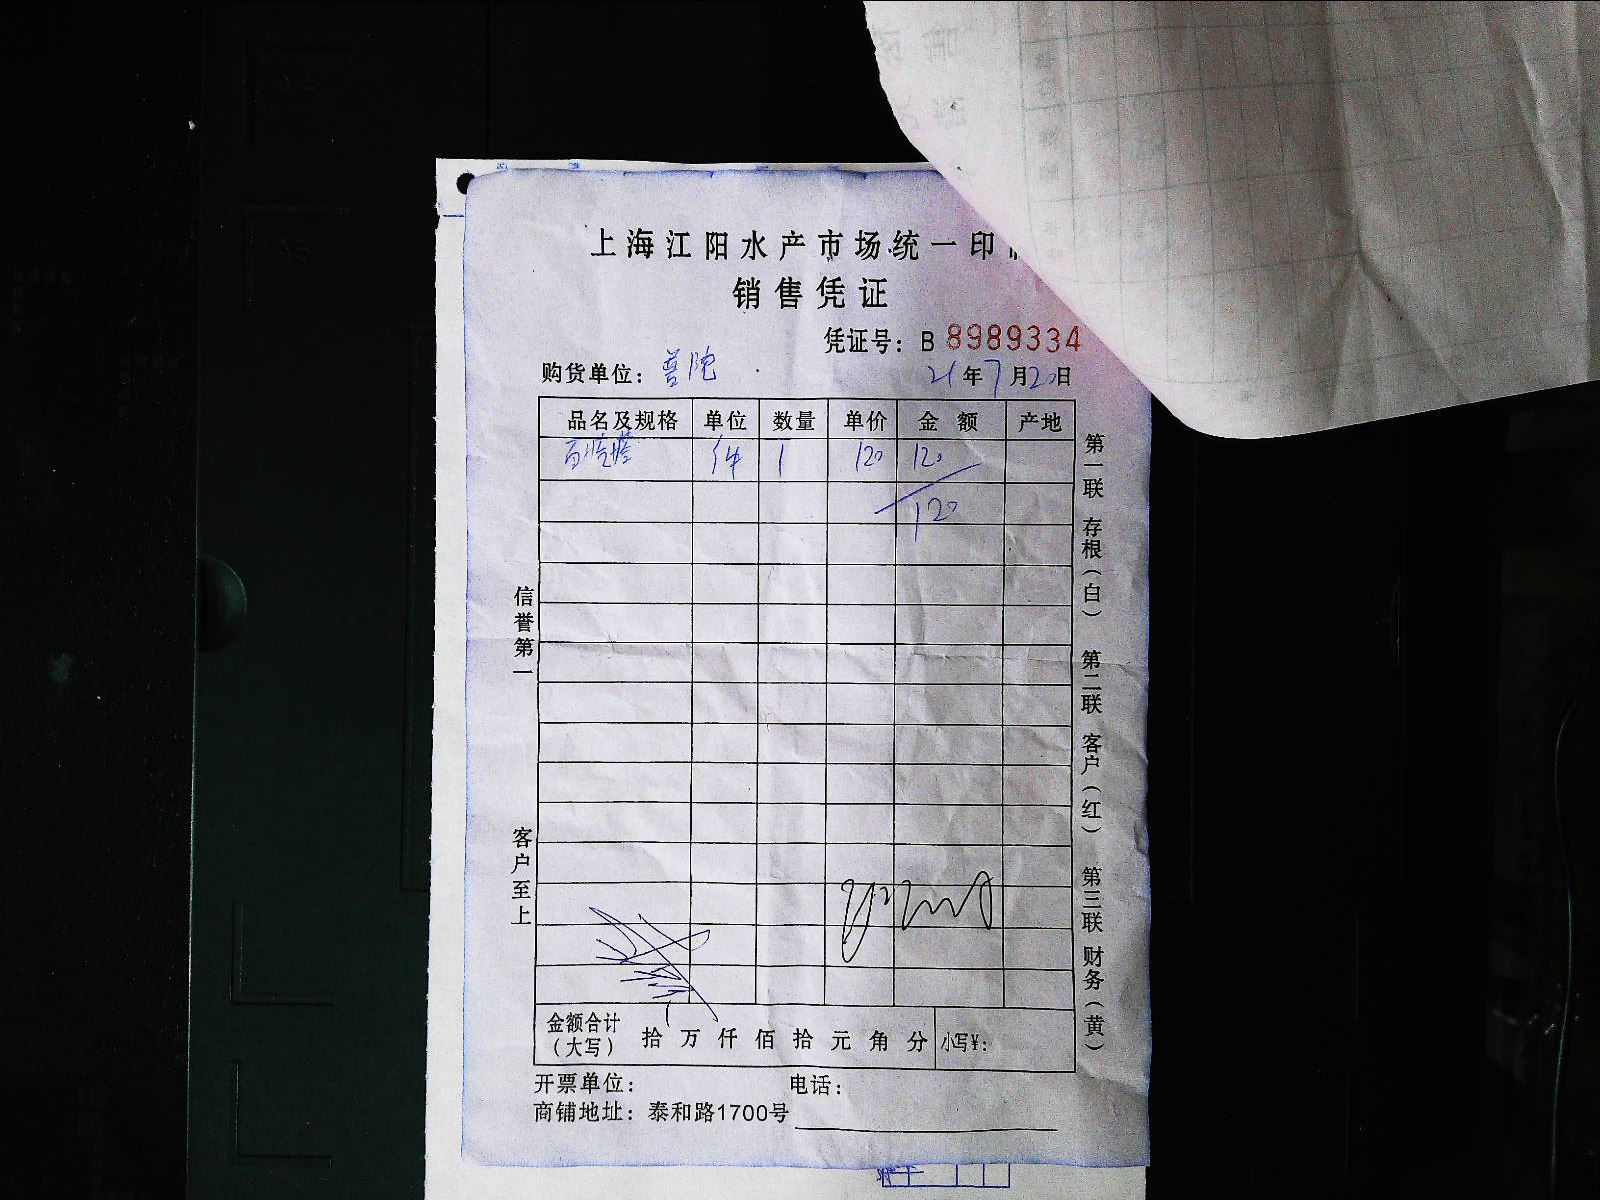 上海江阳水产市场统一印
销售凭证
凭证号：B 8989334
购货单位：普陀 21年7月20日
品名及规格 单位 数量 单价 金额 产地
件 1 120 120
120
信誉第一
客户至上
第一联 存根（白）
第二联 客户（红）
第三联 财务（黄）
金额合计（大写） 拾 万 仟 佰 拾 元 角 分 小写¥：
开票单位： 电话：
商铺地址：泰和路1700号